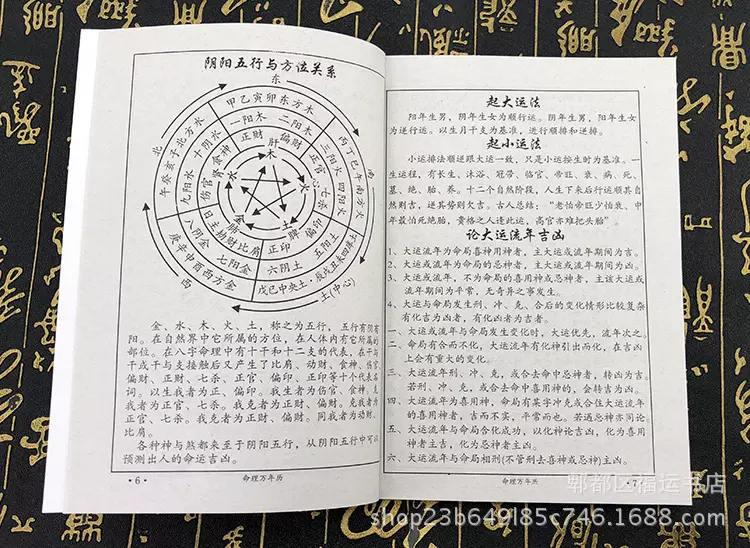 阴阳五行与方位关系
东
甲乙寅卯东方木
一阳木
二阴木
正财
偏财
肝
木
北
午癸亥子北方水
九阳水
十阴水
伤官
食神
肾
水
丙丁巳午南方火
三阳火
四阴火
正官
七杀
心
火
庚辛申酉西方金
八阴金
七阳金
日主
劫财
比肩
肺
金
西
戊己中央土
六阴土
五阳土
正印
偏印
脾
土
土(中心)
金、水、木、火、土，称之为五行，五行有阴有
阳。在自然界中它所属的方位，在人体内有它所属的
部位。在八字命理中有十干和十二支的代表，在干与
干或干与支接触后又产生了比肩、动财、食神、伤官
偏财、正财、七杀、正官、偏印、正印等十个代表名
词。以生我者为正、偏印。我生者为伤官、食神，克
我者为正官、七杀。我克者为正财、偏财。克我者为
正官、七杀。我克者为正财、偏财。同我者为动财、
比肩。
各种神与煞都来至于阴阳五行，从阴阳五行中可以
预测出人的命运吉凶。
·6·
命理万年历
起大运法
阳年生男，阴年生女为顺行运。阴年生男，阳年生女
为逆行运。以生月干支为基准，进行顺排和逆排。
起小运法
小运排法顺逆跟大运一致，只是小运按生时为基准。一
生运程，有长生、沐浴、冠带、临官、帝旺、衰、病、死、
墓、绝、胎、养。十二个自然阶段，人生下来后行运顺其自
然则吉，逆其势则欠吉。古人总结：“老怕帝旺少怕衰，中
年最怕死绝胎，贵格之人逢此运，高官亦难把头抬”。
论大运流年吉凶
1、大运流年为命局喜神用神者，主大运或流年期间为吉。
2、大运或流年为命局忌神者，主大运或流年期间为凶。
3、大运或流年，不为命局的喜神或忌神者，主该大运或
流年期间为平常，无奇异之事发生。
4、大运与命局发生刑、冲、克、合后的变化情形比较复杂
有化吉为凶者，有化凶者为吉者。
一、大运或流年与命局发生变化时，大运优先，流年次之。
二、命局有合而不化，大运流年有化神引出而化，在吉凶
上会有重大的变化。
三、大运流年刑、冲、克、或合去命中忌神者，转凶为吉
若刑、冲、克、或合去命中喜用神的，会转吉为凶。
四、大运流年为喜用神，命局有某字冲克或合住大运流年
的喜用神者，吉而不实，平常而也。若遇忌神亦同论
五、大运流年与命局合化成功，以化神论吉凶，化为喜用
神者主吉，化为忌神者主凶。
六、大运流年与命局相刑(不管刑去喜神或忌神)主凶。
命理万年历
·7·
郫都区福运书店
shop23b649l85c746.1688.com